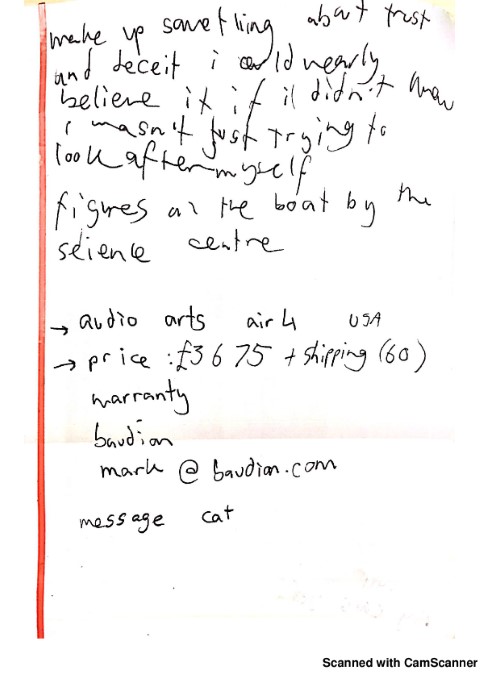 make up something about trust
and deceit i could nearly
believe it if i didn't know
i wasn't just trying to
look after myself
figures on the boat by the
science centre
→ audio arts air 4 USA
→ price : £3675 + shipping (60)
warranty
baudion
mark @ baudion.com
message cat
Scanned with CamScanner